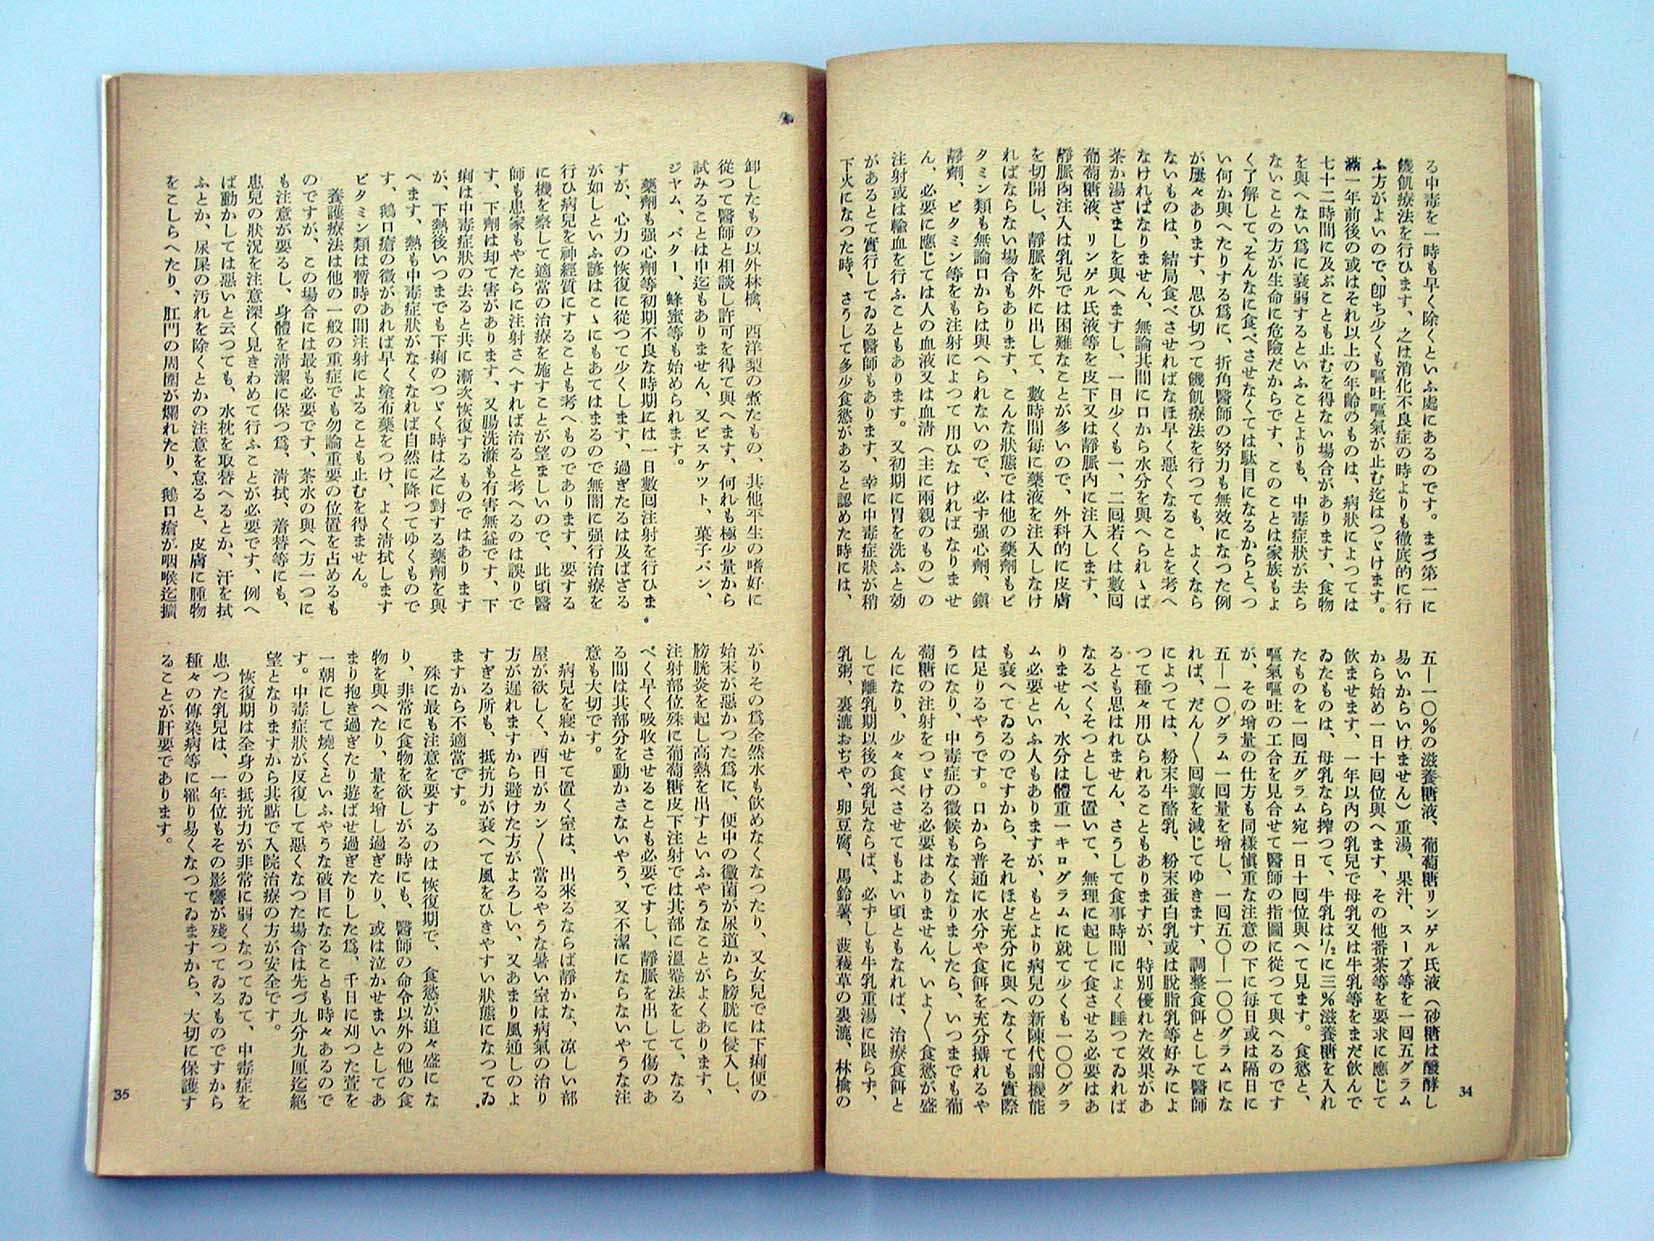 る中毒を一時も早く除くといふ處にあるのです。まづ第一に
饑飢療法を行ひます、之は消化不良症の時よりも徹底的に行
ふ方がよいので、卽ち少くも嘔吐嘔氣が止む迄はつゞけます。
滿一年前後の或はそれ以上の年齡のものは、病狀によつては
七十二時間に及ぶことも止むを得ない場合があります、食物
を與へない爲に衰弱するといふことよりも、中毒症狀が去ら
ないことの方が生命に危險だからです、このことは家族もよ
く了解して、そんなに食べさせなくては駄目になるからと、つ
い何か與へたりする爲に、折角醫師の努力も無效になつた例
が屢々あります、思ひ切つて饑飢療法を行つても、よくなら
ないものは、結局食べさせればなほ早く悪くなることを考へ
なければなりません、無論其間に口から水分を與へられゝば
茶か湯ざましを與へますし、一日少くも一、二囘若くは數囘
葡萄糖液、リンゲル氏液等を皮下又は靜脈內に注入します、
靜脈內注入は乳兒では困難なことが多いので、外科的に皮膚
を切開し、靜脈を外に出して、數時間每に藥液を注入しなけ
ればならない場合もあります、こんな狀態では他の藥劑もビ
タミン類も無論口からは與へられないので、必ず强心劑、鎭
靜劑、ビタミン等をも注射によつて用ひなければなりませ
ん、必要に應じては人の血液又は血淸（主に兩親のもの）の
注射或は輸血を行ふこともあります。又初期に胃を洗ふと效
があるとて實行してゐる醫師もあります、幸に中毒症狀が稍
下火になつた時、さうして多少食慾があると認めた時には、
五―一〇％の滋養糖液、葡萄糖リンゲル氏液（砂糖は醱酵し
易いからいけません）重湯、果汁、スープ等を一囘五グラム
から始め一日十囘位與へます、その他番茶等を要求に應じて
飲ませます、一年以內の乳兒で母乳又は牛乳等をまだ飲んで
ゐたものは、母乳なら搾つて、牛乳は1/2に三％滋養糖を入れ
たものを一囘五グラム宛一日十囘位與へて見ます。食慾と、
嘔氣嘔吐の工合を見合せて醫師の指圖に從つて與へるのです
が、その增量の仕方も同樣愼重な注意の下に每日或は隔日に
五―一〇グラム一囘量を增し、一囘五〇―一〇〇グラムにな
れば、だん〱囘數を減じてゆきます、調整食餌として醫師
によつては、粉末牛酪乳、粉末蛋白乳或は脫脂乳等好みによ
つて種々用ひられることもありますが、特別優れた效果があ
るとも思はれません、さうして食事時間によく睡つてゐれば
なるべくそつとして置いて、無理に起して食させる必要はあ
りません、水分は體重一キログラムに就て少くも一〇〇グラ
ム必要といふ人もありますが、もとより病兒の新陳代謝機能
も衰へてゐるのですから、それほど充分に與へなくても實際
は足りるやうです。口から普通に水分や食餌を充分攝れるや
うになり、中毒症の徵候もなくなりましたら、いつまでも葡
萄糖の注射をつゞける必要はありません、いよ〱食慾が盛
んになり、少々食べさせてもよい頃ともなれば、治療食餌と
して離乳期以後の乳兒ならば、必ずしも牛乳重湯に限らず、
乳粥、裏漉おぢや、卵豆腐、馬鈴薯、菠薐草の裏漉、林檎の
34
卸したもの以外林檎、西洋梨の煮たもの、其他平生の嗜好に
從つて醫師と相談し許可を得て與へます、何れも極少量から
試みることは申迄もありません、又ビスケツト、菓子パン、
ジヤム、バター、蜂蜜等も始められます。
藥劑も强心劑等初期不良な時期には一日數囘注射を行ひま
すが、心力の恢復に從つて少くします、過ぎたるは及ばざる
が如しといふ諺はこゝにもあてはまるので無闇に强行治療を
行ひ病兒を神經質にすることも考へものであります、要する
に機を察して適當の治療を施すことが望ましいので、此頃醫
師も患家もやたらに注射さへすれば治ると考へるのは誤りで
す、下劑は却て害があります、又腸洗滌も有害無益です、下
痢は中毒症狀の去ると共に漸次恢復するものではあります
が、下熱後いつまでも下痢のつゞく時は之に對する藥劑を與
へます、熱も中毒症狀がなくなれば自然に降つてゆくもので
す、鵝口瘡の徵があれば早く塗布藥をつけ、よく淸拭します
ビタミン類は暫時の間注射によることも止むを得ません。
養護療法は他の一般の重症でも勿論重要の位置を占めるも
のですが、この場合には最も必要です、茶水の與へ方一つに
も注意が要るし、身體を淸潔に保つ爲、淸拭、着替等にも、
患兒の狀況を注意深く見きわめて行ふことが必要です、例へ
ば動かしては悪いと云つても、水枕を取替へるとか、汗を拭
ふとか、尿屎の汚れを除くとかの注意を怠ると、皮膚に腫物
をこしらへたり、肛門の周圍が爛れたり、鵝口瘡が咽喉迄擴
がりその爲全然水も飲めなくなつたり、又女兒では下痢便の
始末が悪かつた爲に、便中の黴菌が尿道から膀胱に侵入し、
膀胱炎を起し高熱を出すといふやうなことがよくあります、
注射部位殊に葡萄糖皮下注射では其部に溫罨法をして、なる
べく早く吸收させることも必要ですし、靜脈を出して傷のあ
る間は其部分を動かさないやう、又不潔にならないやうな注
意も大切です。
病兒を寢かせて置く室は、出來るならば靜かな、凉しい部
屋が欲しく、西日がカン〱當るやうな暑い室は病氣の治り
方が遲れますから避けた方がよろしい、又あまり風通しのよ
すぎる所も、抵抗力が衰へて風をひきやすい狀態になつてゐ
ますから不適當です。
殊に最も注意を要するのは恢復期で、食慾が追々盛にな
り、非常に食物を欲しがる時にも、醫師の命令以外の他の食
物を與へたり、量を增し過ぎたり、或は泣かせまいとしてあ
まり抱き過ぎたり遊ばせ過ぎたりした爲、千日に刈つた萱を
一朝にして燒くといふやうな破目になることも時々あるので
す。中毒症狀が反復して悪くなつた場合は先づ九分九厘迄絕
望となりますから其點で入院治療の方が安全です。
恢復期は全身の抵抗力が非常に弱くなつてゐて、中毒症を
患つた乳兒は、一年位もその影響が殘つてゐるものですから
種々の傳染病等に罹り易くなつてゐますから、大切に保護す
ることが肝要であります。
35